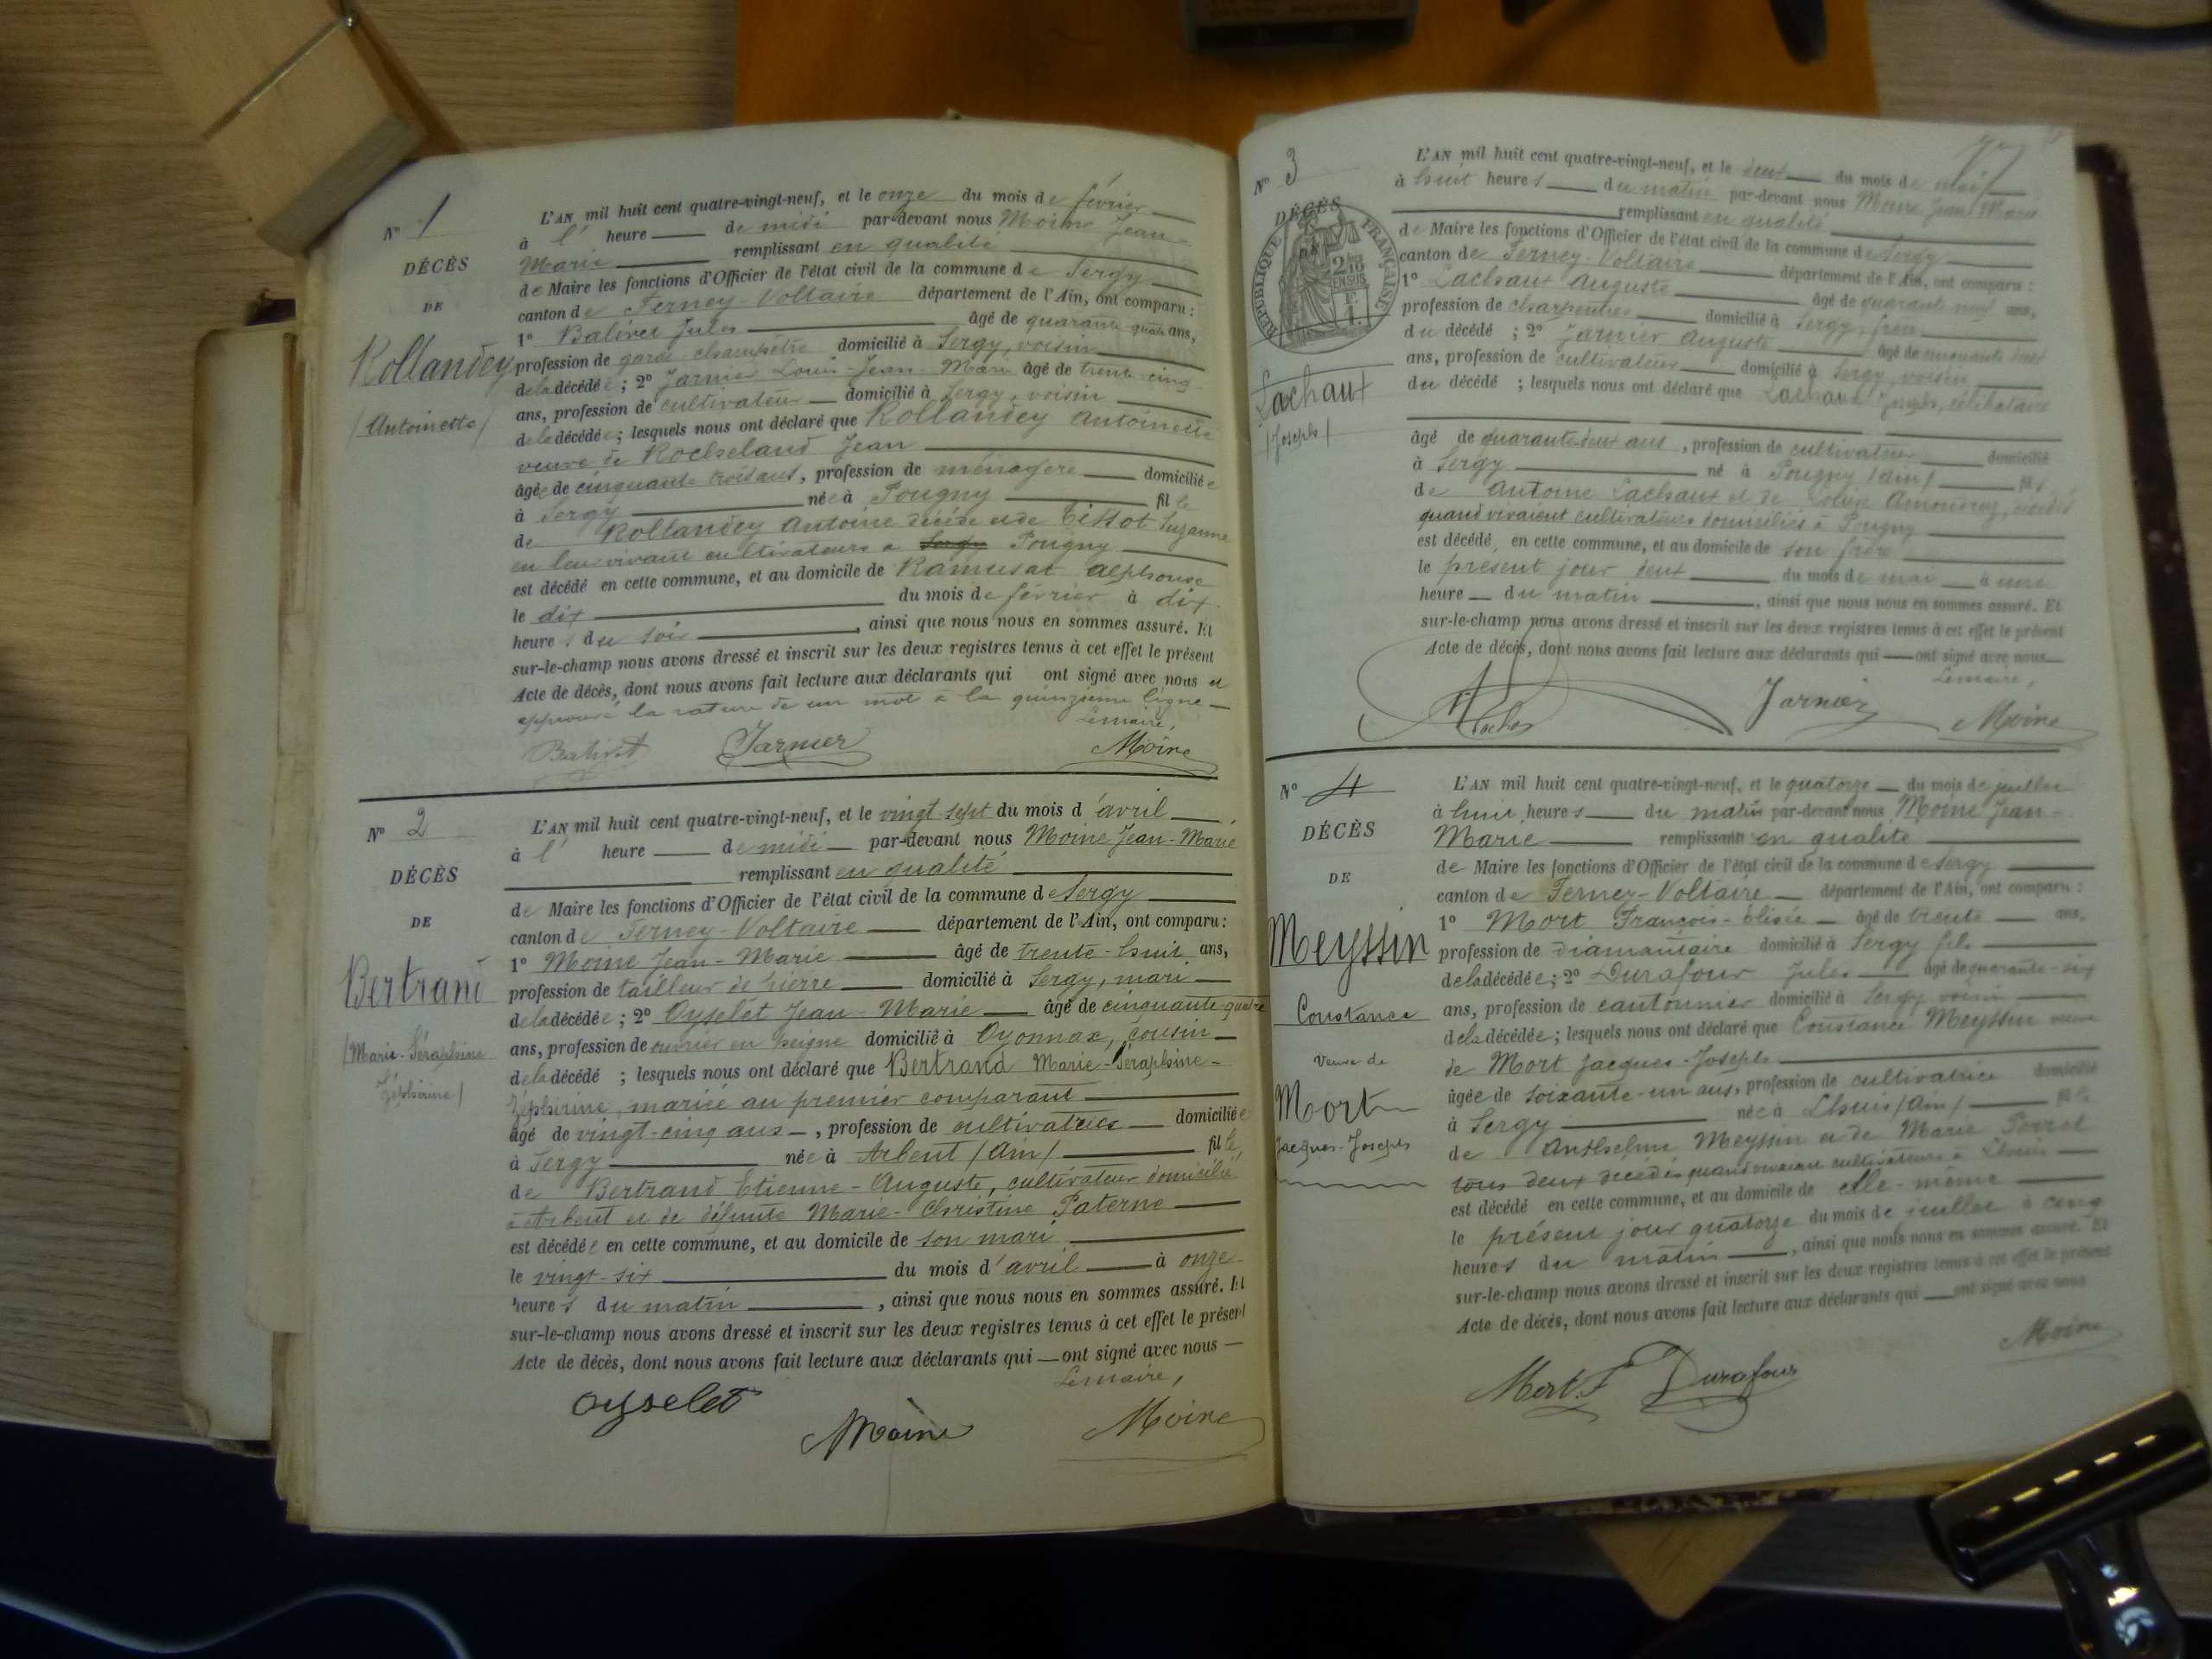 N° 1
DÉCÈS
DE
Rollandey
/ Antoinette /
L'AN mil huit cent quatre-vingt-neuf, et le onze du mois de février
à l' heure de midi par-devant nous Moine Jean-
Marie remplissant en qualité
de Maire les fonctions d'Officier de l'état civil de la commune de Sergy
canton de Ferney-Voltaire département de l'Ain, ont comparu :
1° Balivet Jules âgé de quarante quatre ans,
profession de garde champêtre domicilié à Sergy, voisin
de la décédée ; 2° Jarnier Louis-Jean-Marie âgé de trente-cinq
ans, profession de cultivateur domicilié à Sergy, voisin
de la décédée ; lesquels nous ont déclaré que Rollandey Antoinette
veuve de Rocheland Jean
âgée de cinquante trois ans, profession de ménagère domiciliée
à Sergy née à Pougny fille
de Rollandey Antoine décédé et de Tissot Suzanne
en leur vivant cultivateurs à Sergy Pougny
est décédé en cette commune, et au domicile de Ramusat Alphonse
le dix du mois de février à dix
heures du soir, ainsi que nous nous en sommes assuré. Et
sur-le-champ nous avons dressé et inscrit sur les deux registres tenus à cet effet le présent
Acte de décès, dont nous avons fait lecture aux déclarants qui ont signé avec nous et
approuvé la rature de un mot à la quinzième ligne
Le maire,
Balivet Jarnier Moine
N° 2
DÉCÈS
DE
Bertrand
/ Marie-Séraphine
Zéphirine /
L'AN mil huit cent quatre-vingt-neuf, et le vingt-sept du mois d'avril
à l' heure de midi par-devant nous Moine Jean-Marie
remplissant en qualité
de Maire les fonctions d'Officier de l'état civil de la commune de Sergy
canton de Ferney-Voltaire département de l'Ain, ont comparu :
1° Moine Jean-Marie âgé de trente-huit ans,
profession de tailleur de pierre domicilié à Sergy, mari
de la décédée ; 2° Oyselet Jean-Marie âgé de cinquante quatre
ans, profession de ouvrier en peigne domicilié à Oyonnax, cousin
de la décédé ; lesquels nous ont déclaré que Bertrand Marie-Séraphine-
Zéphirine, mariée au premier comparant
âgé de vingt-cinq ans, profession de cultivatrice domiciliée
à Sergy née à Arbent / Ain / fille
de Bertrand Etienne-Auguste, cultivateur domicilié
à Arbent et de défunte Marie-Christine Paterne
est décédée en cette commune, et au domicile de son mari
le vingt-six du mois d'avril à onze
heures du matin, ainsi que nous nous en sommes assuré. Et
sur-le-champ nous avons dressé et inscrit sur les deux registres tenus à cet effet le présent
Acte de décès, dont nous avons fait lecture aux déclarants qui ont signé avec nous
Le maire,
Oyselet Moine Moine
N° 3
DÉCÈS
RÉPUBLIQUE FRANÇAISE
Lachaux
/ Joseph /
L'AN mil huit cent quatre-vingt-neuf, et le deux du mois de mai
à huit heures du matin par-devant nous Moine Jean Marie
remplissant en qualité
de Maire les fonctions d'Officier de l'état civil de la commune de Sergy
canton de Ferney-Voltaire département de l'Ain, ont comparu :
1° Lachaux Auguste âgé de quarante neuf ans,
profession de charpentier domicilié à Sergy, frère
du décédé ; 2° Jarnier Auguste âgé de cinquante deux
ans, profession de cultivateur domicilié à Sergy, voisin
du décédé ; lesquels nous ont déclaré que Lachaux Joseph, célibataire
âgé de quarante-deux ans, profession de cultivateur domicilié
à Sergy né à Pougny / Ain / fils
de Antoine Lachaux et de
quand vivaient cultivateurs domiciliés à Pougny
est décédé, en cette commune, et au domicile de son frère
le présent jour deux du mois de mai à une
heure du matin, ainsi que nous nous en sommes assuré. Et
sur-le-champ nous avons dressé et inscrit sur les deux registres tenus à cet effet le présent
Acte de décès, dont nous avons fait lecture aux déclarants qui ont signé avec nous
Le maire,
Jarnier Moine
N° 4
DÉCÈS
DE
Meyssin
Constance
veuve de
Mort
Jacques-Joseph
L'AN mil huit cent quatre-vingt-neuf, et le quatorze du mois de juillet
à huit heures du matin par-devant nous Moine Jean-
Marie remplissant en qualité
de Maire les fonctions d'Officier de l'état civil de la commune de Sergy
canton de Ferney-Voltaire département de l'Ain, ont comparu :
1° Mort François-Elisée âgé de trente ans,
profession de diamantaire domicilié à Sergy fils
de la décédée ; 2° Durafour Jules âgé de quarante-six
ans, profession de cantonnier domicilié à Sergy voisin
de la décédée ; lesquels nous ont déclaré que Constance Meyssin veuve
de Mort Jacques-Joseph
âgée de soixante-un ans, profession de cultivatrice domicilié
à Sergy née à Lhuis / Ain / fille
de Anthelme Meyssin et de Marie
tous deux décédés quand vivaient cultivateurs à Lhuis
est décédé en cette commune, et au domicile de elle-même
le présent jour quatorze du mois de juillet à cinq
heures du matin, ainsi que nous nous en sommes assuré. Et
sur-le-champ nous avons dressé et inscrit sur les deux registres tenus à cet effet le présent
Acte de décès, dont nous avons fait lecture aux déclarants qui ont signé avec nous
Mort.F Durafour Moine